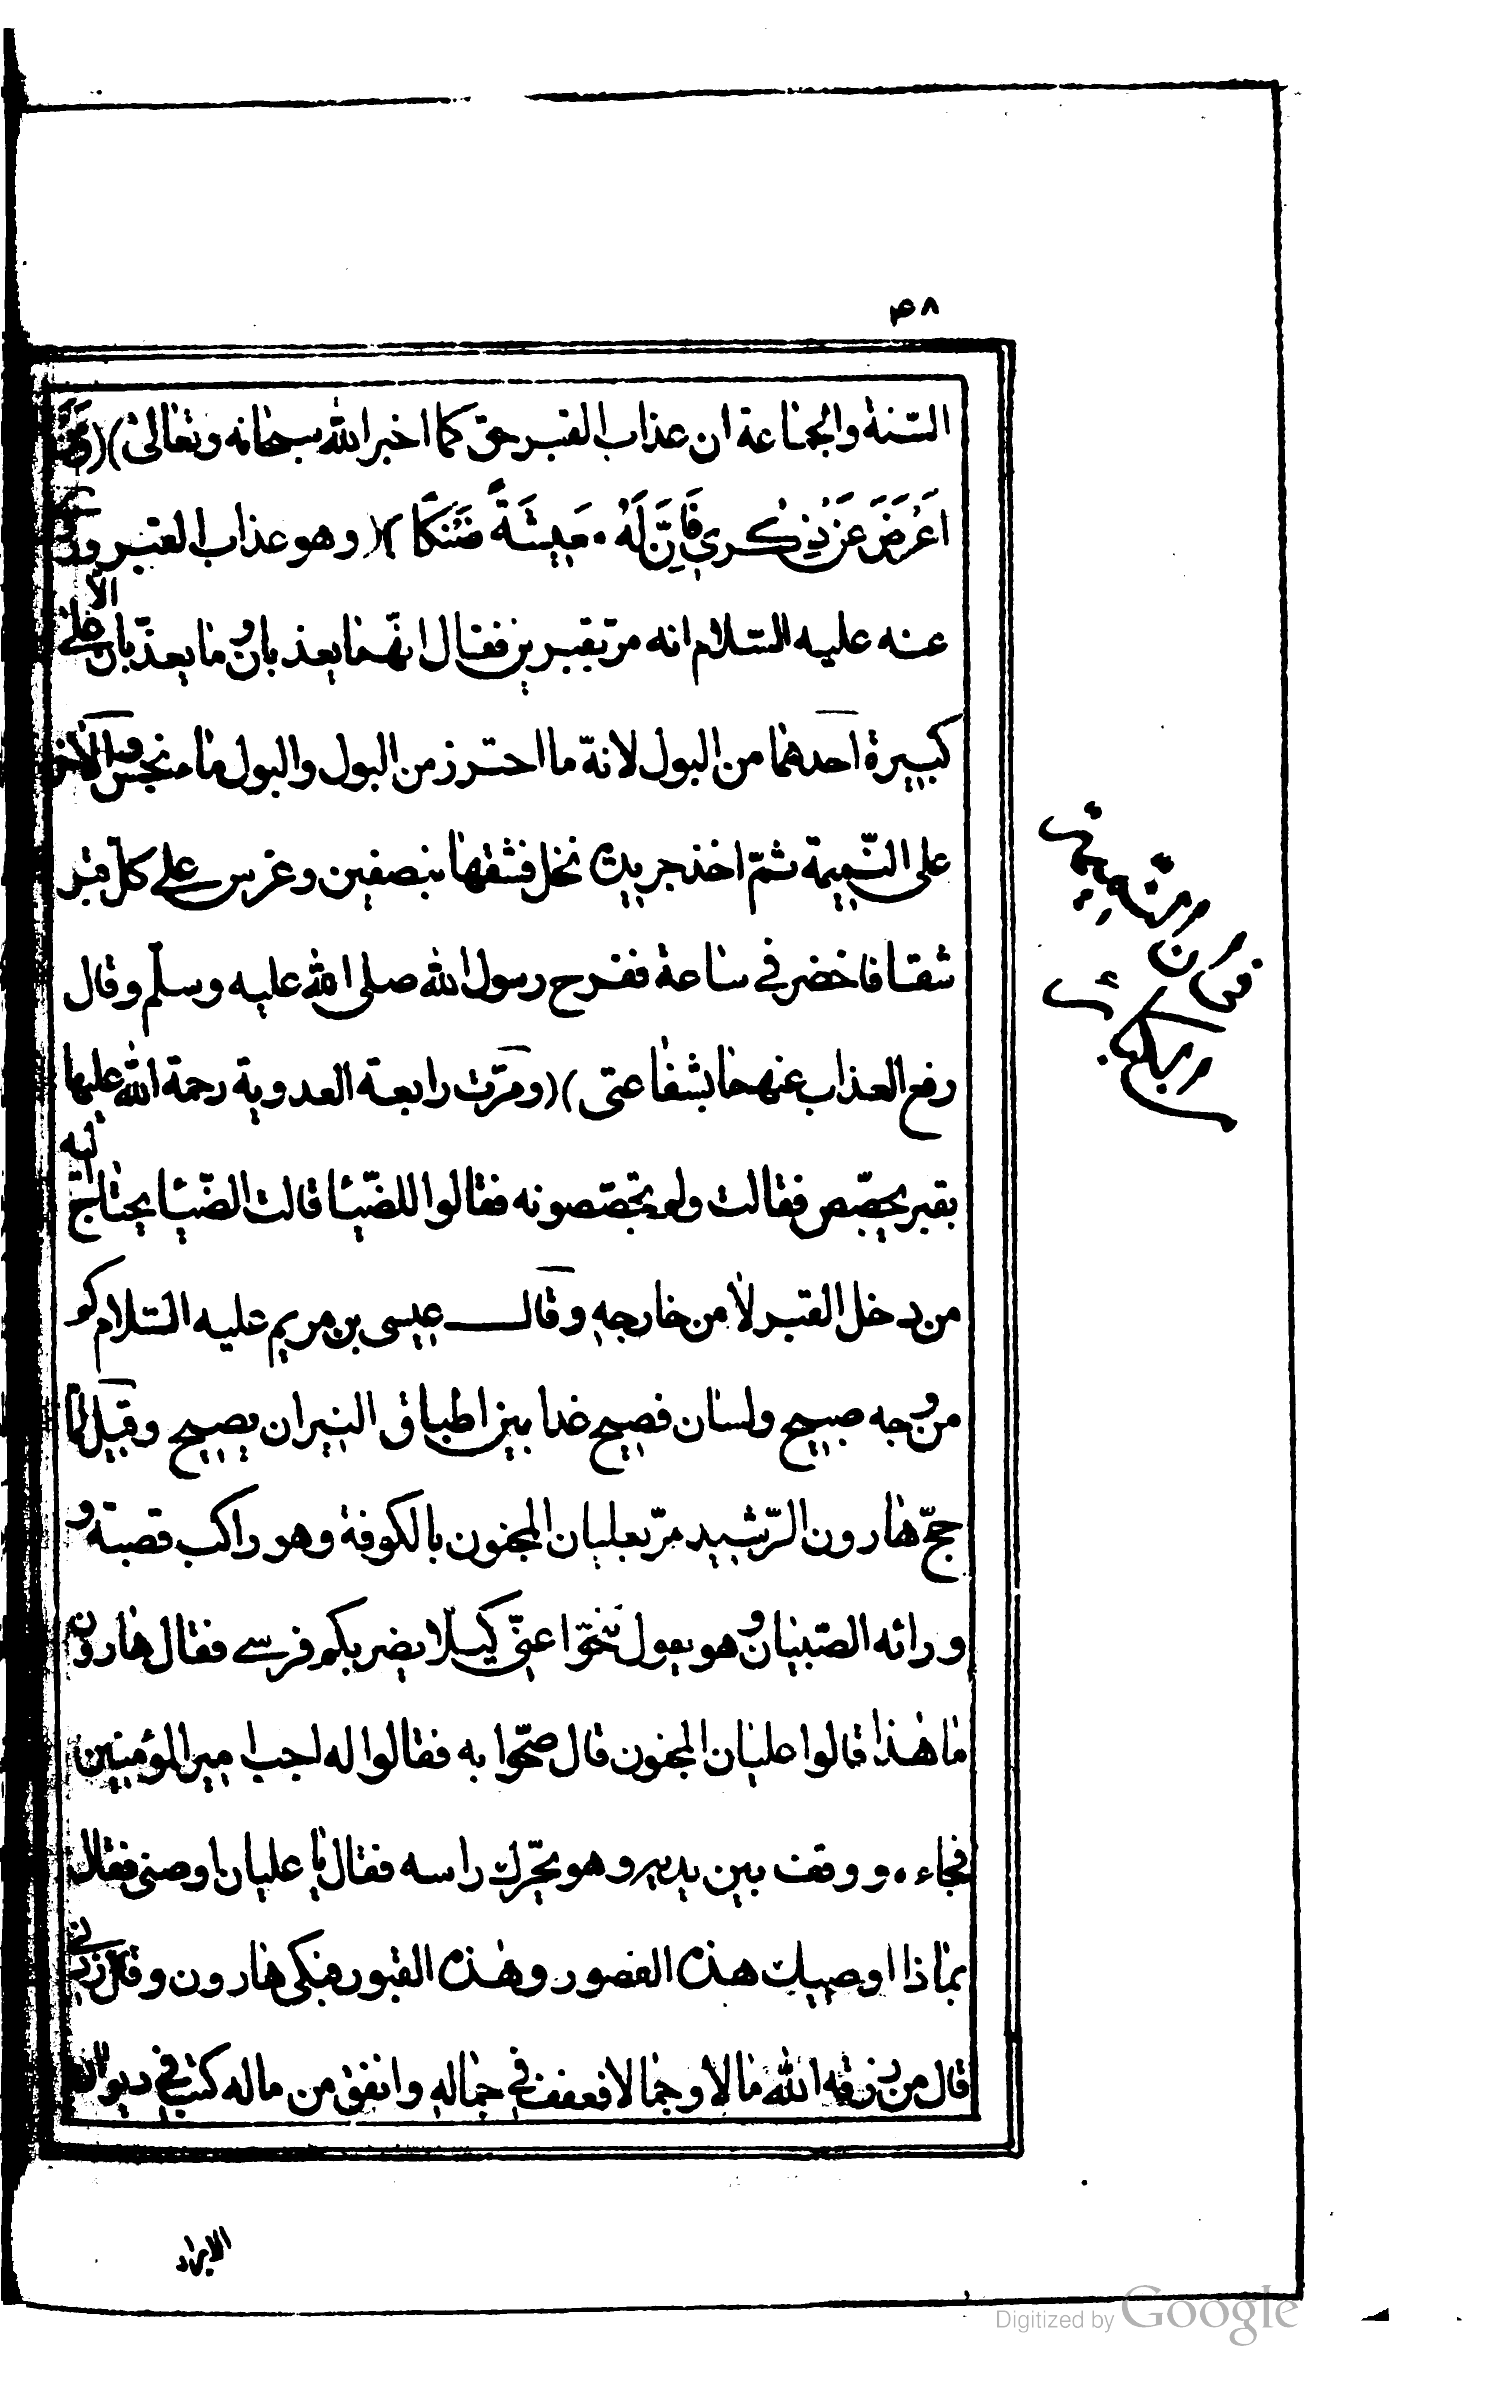 ۴۸
السّنة والجماعة ان عذاب القبر حق كما اخبر الله سبحانه وتعالى)(وَمَنْ
اَعْرَضَ عَنْ ذِكْرِي فَاِنَّ لَهُ مَعِيشَةً ضَنْكًا)(وهو عذاب القبر وروى
عنه عليه السّلام انه مرّ بقبرين فقال انّهما يعذبان وما يعذّبان الا على
كبيرة احدهما من البول لانهّ ما احترز من البول والبول ما منجس والآخر
على النّميمة ثمّ اخذ جريدة نخل فشقها بنصفين وغرس على كل قبر
شقا فاخضر في ساعة ففرح رسول الله صلى الله عليه وسلّم وقال
رفع العذاب عنهما بشفاعتى)(ومرّت رابعة العدوية رحمة الله عليها
بقبر يجصّص فقالت ولم يجصّصونه فقالوا للضّيا قالت الضّيا يحتاج اليه
من دخل القبر لا من خارجه وقال عيسى بن مريم عليه السّلام كم
من وجه صبيح ولسان فصيح غدا بين اطباق النيران يصيح وقيل لمّا
حجّ هارون الرّشيد مرّ بعليان المجنون بالكوفة وهو راكب قصبة و
ورائه الصّبيان وهو يقول تنحّوا عنّي كيلا يضربكم فرسي فقال هارون
ما هذا قالوا عليان المجنون قال صحّوا به فقالوا له اجب امير المؤمنين
فجاءه ووقف بين يديه وهو يحّرك راسه فقال يا عليان اوصنى فقال
بماذا اوصيك هذه القصور وهذه القبور فبكى هارون وقال زدني
قال من رزقه الله مالا وجمالا فعفف في جماله وانفق من ماله كتب في ديوان
الابرار